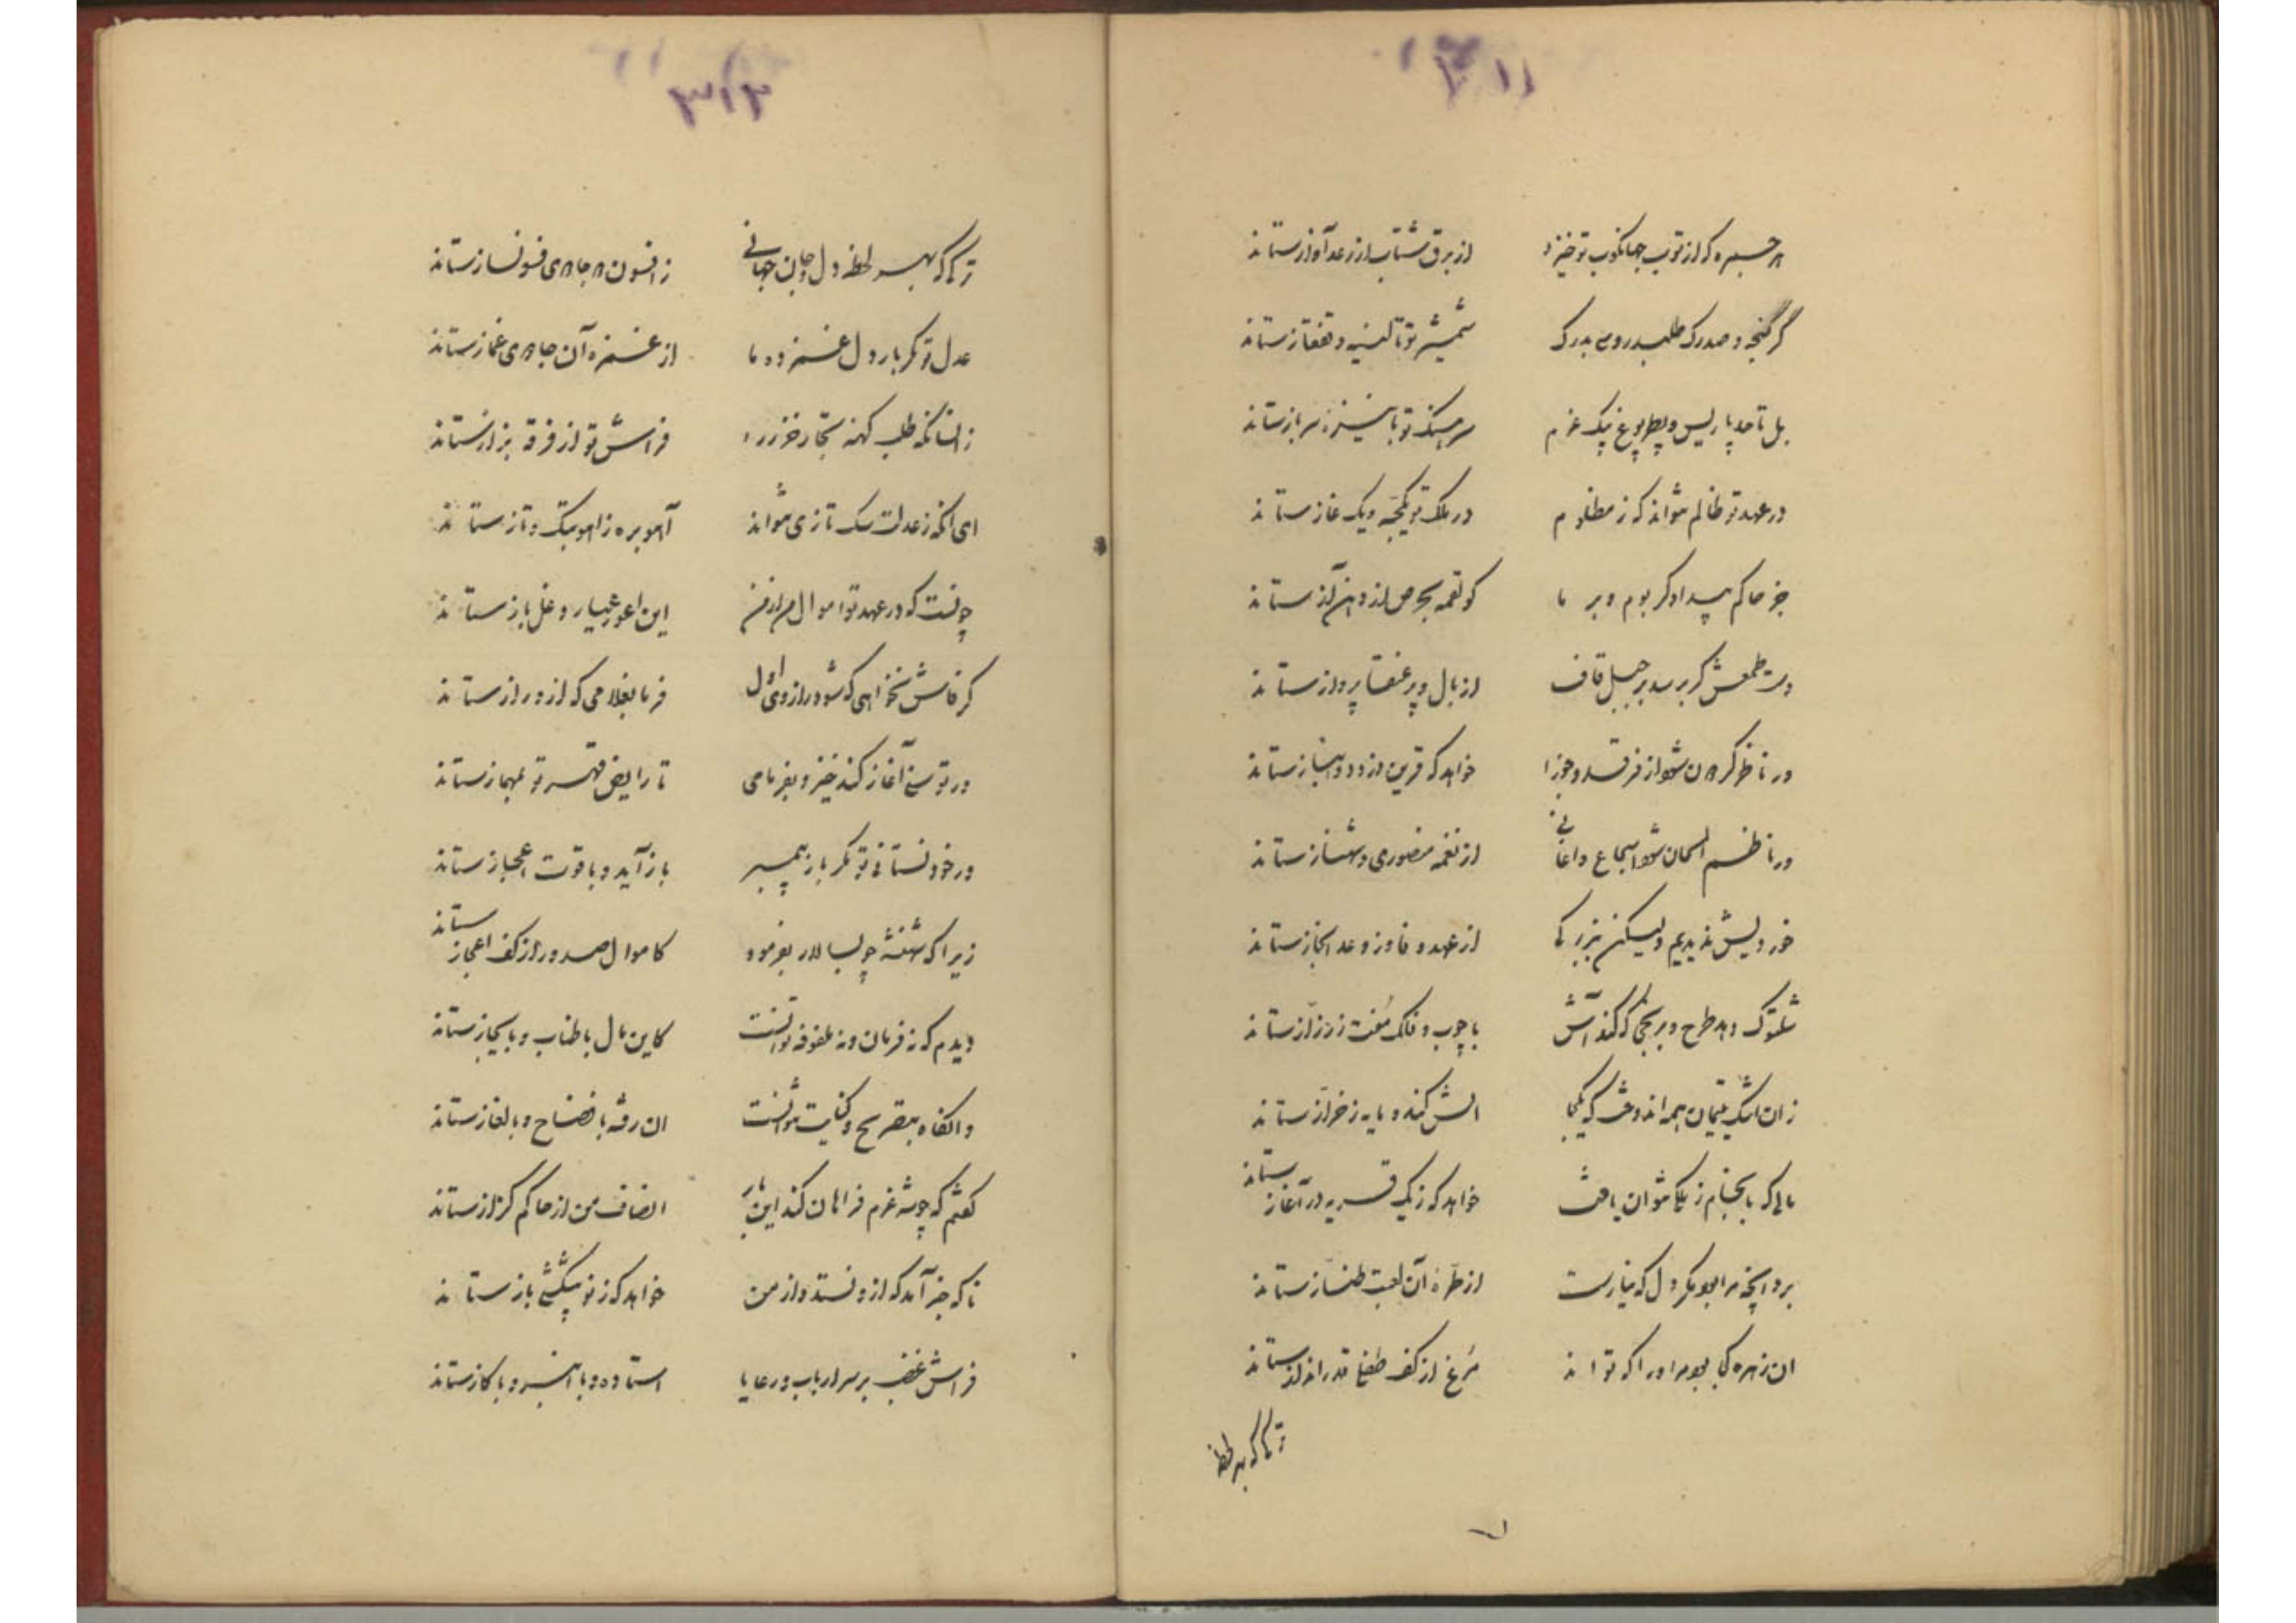 هر خمپره که از توپ جهانکوب تو خیزد از برق شتاب از رعد آواز ستاند
گر گنجه و صدرک طلبد روس بدرک شمشیر تو تا تفلیس و قفقاز ستاند
بل تا حد پاریس و پطربورغ بیک عزم سرهنگ تو با نیزه سرباز ستاند
در عهد تو ظالم نتواند که ز مظلوم در ملک تو یکجبه و یک غاز ستاند
جز حاکم بیدادگر بوم و بر ما کو لقمه بحرص از دهن آز ستاند
دست طمعش گر برسد بر جبل قاف از بال و پر عنقا پرواز ستاند
ور ناظر گردون شود از فرقد و جوزا خواهد که قرین از دو و انباز ستاند
ور ناظم الحان شود اسجاع و اغانی از نغمه منصوری و شهناز ستاند
خود ویلش ندیدیم ولیکن بزبر کا از عهد وفا وز وعد انجاز ستاند
شلتوک دهد طرح و برنجی که کند آتش با چوب و فلک مفت ز رزاز ستاند
زان اشک یتیمان همه اندوخت که یکجا الش کند و مایه ز خراز ستاند
مالی که بانجام ز یکملک نتوان یافت خواهد که ز یک قریه در آغاز ستاند
برد آنچه مرا بود مگر دل که نیارست از طره آن لعبت طناز ستاند
آن زهره کجا بود مر او را که تواند مرغ از کف طفل قدرانداز ستاند
ترکی که بهر لحظه
۳۱۳
ترکی که بهر لحظه دل و جان جهانی ز افسون دو جادوی فسونساز ستاند
عدل تو مگر بار دل غمزده ما از غمزه آن جادوی غماز ستاند
زانسانکه طلب کهنه تجار خزر را فراش تو از فرقه بزاز ستاند
ای آنکه ز عدلت سگ تازی نتواند آهو بره ز آهو بتک و تاز ستاند
چونست که در عهد تو اموال من از من این اعور عیار دغل باز ستاند
گر فاش نخواهی که شود راز وی اول فرما بغلامی که از او راز ستاند
ور توسنی آغاز کند خیز و بفرمای تا رایض قهر تو بمهماز ستاند
ور خود نستانی تو مگر باز پیمبر باز آید و با قوت اعجاز ستاند
زیرا که شهنشه چو بسالار بفرمود کاموال صدور از کف اعجاز ستاند
دیدم که نه فرمان و نه ملفوفه توانست کاین مال باطناب و بایجاز ستاند
وانگاه بتصریح و کنایت نتوانست آن رفته بافصاح و بالغاز ستاند
گفتم که چو شه عزم فراهان کند این بار انصاف من از حاکم کزاز ستاند
ناگه خبر آمد که از او نستد و از من خواهد که ز نو پیشکشی باز ستاند
فراش غضب بر سر ارباب و رعایا استاده و با انبر و با گاز ستاند